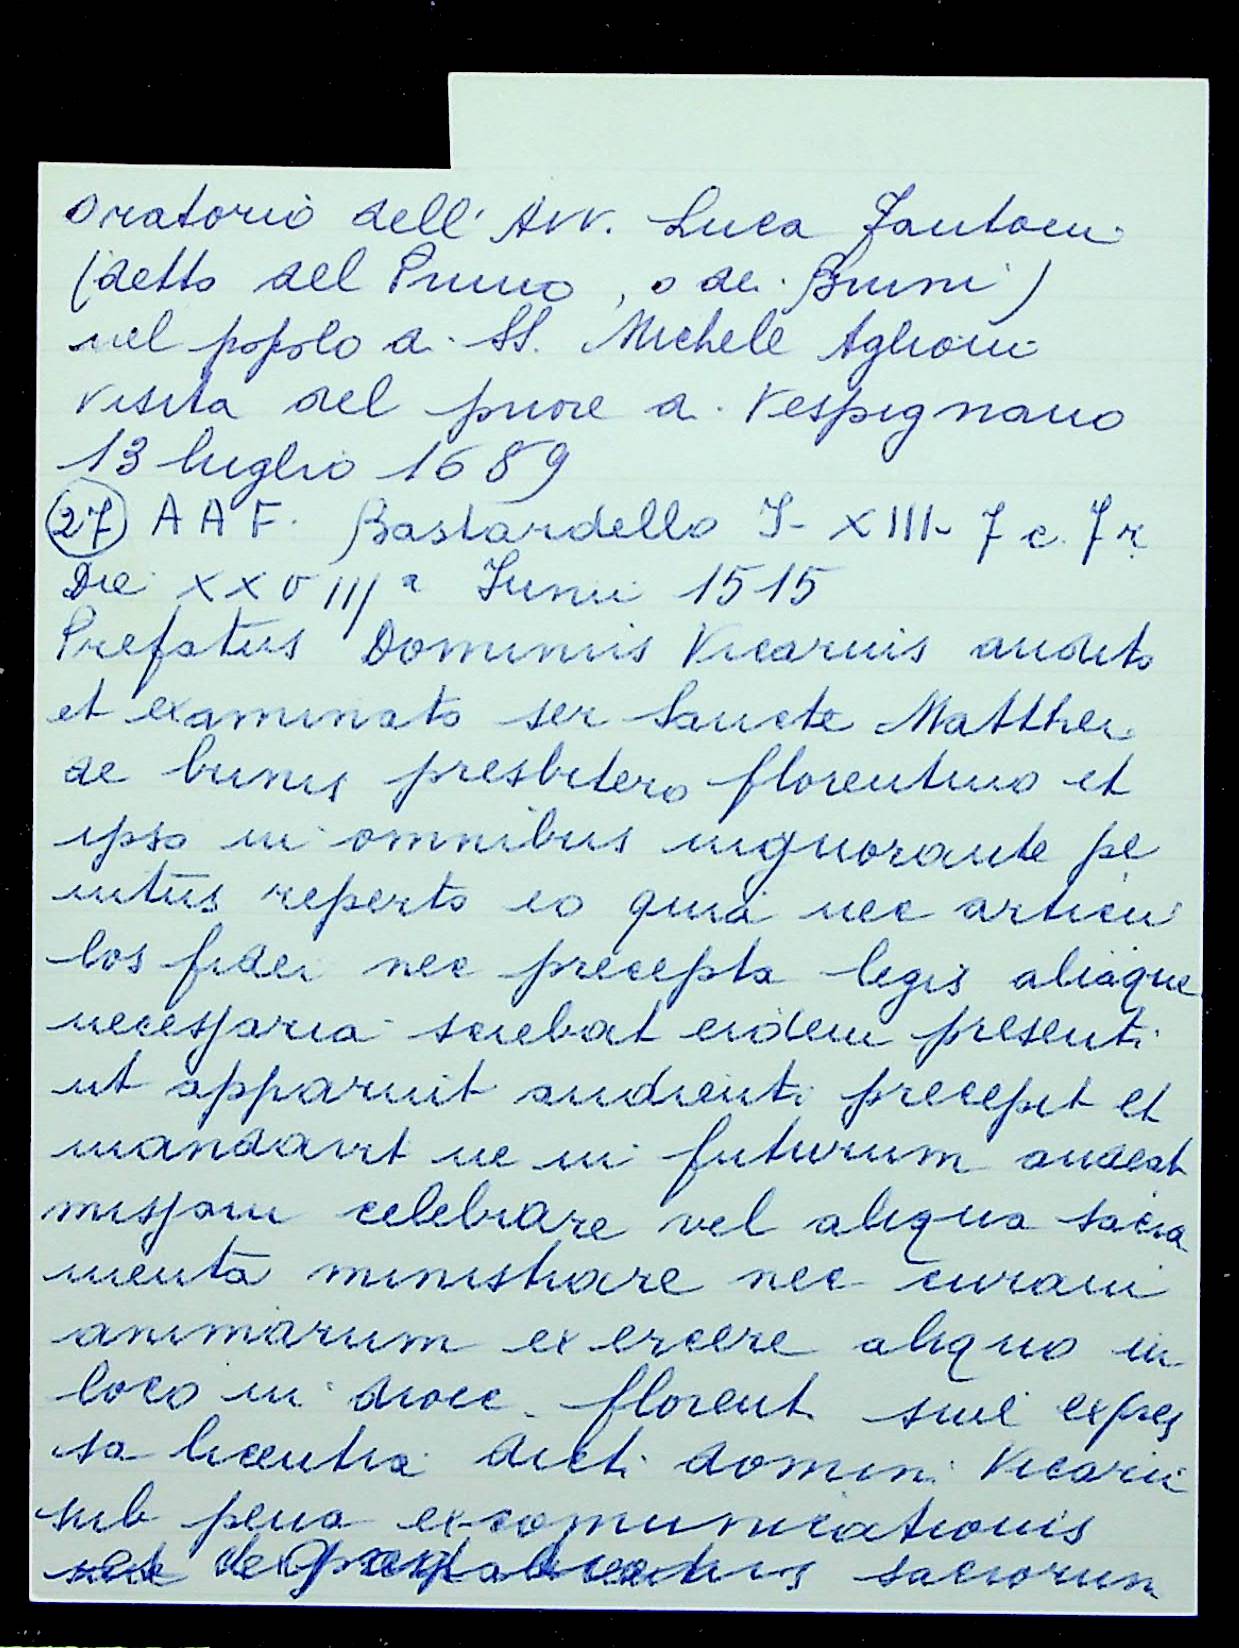 Oratorio dell'Avv. Luca Fantoni
(detto del Pruno, o dei Bruni)
nel popolo di SS. Michele Aglioni
visita del priore di Vespignano
13 luglio 1689
(27) A A F. Bastardello I- XIII- 7 c. 7r
Die XXVIIIa Iunii 1515
Prefatus Dominus Vicarius audito
et examinato ser Sancte Matthei
de brunis presbitero florentino et
ipso in omnibus ingnorante pe
nitus reperto eo quia nec articu
los fidei nec precepta legis aliaque
necessaria sciebat eidem presenti
ut apparuit audienti precepit et
mandavit ne in futurum audeat
missam celebrare vel aliqua sacra
menta ministrare nec curam
animarum exercere aliquo in
loco in dioec. florent. sine expres
sa licentia dicti domini Vicarii
sub pena excomunicationis
sacrorum